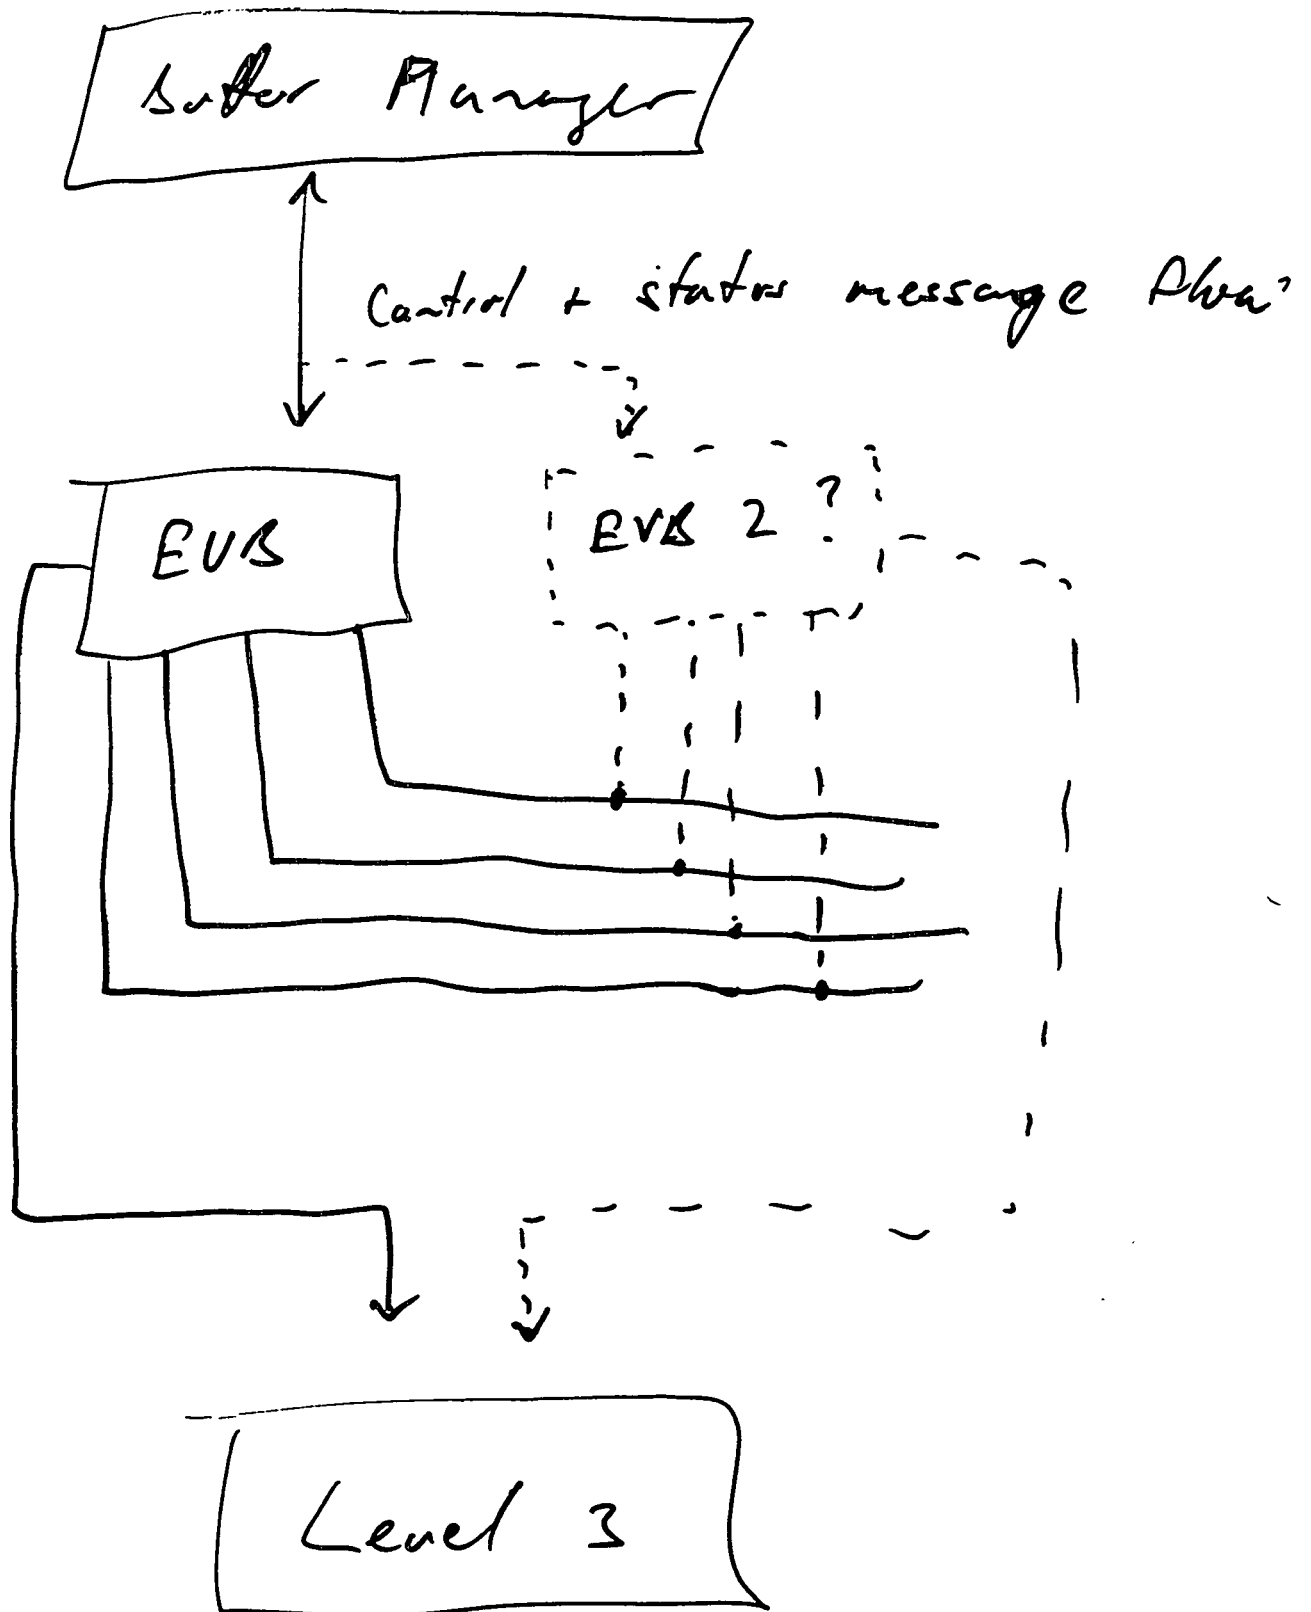 Buffer Manager
Control + status message flow
EVB
EVB 2 ?
Level 3